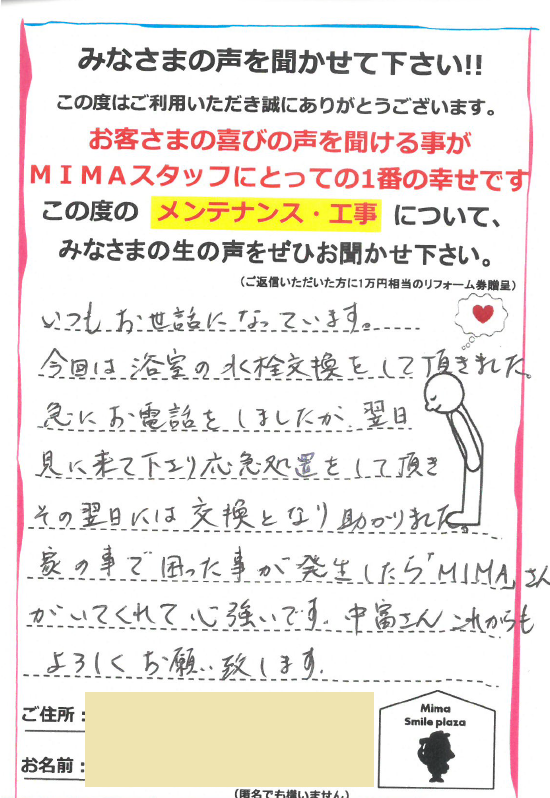 みなさまの声を聞かせて下さい!!
この度はご利用いただき誠にありがとうございます。
お客さまの喜びの声を聞ける事が
MIMAスタッフにとっての1番の幸せです
この度の メンテナンス・工事 について、
みなさまの生の声をぜひお聞かせ下さい。
(ご返信いただいた方に1万円相当のリフォーム券贈呈)
いつもお世話になっています。
今回は浴室の水栓交換をして頂きました。
急にお電話をしましたが、翌日
見に来て下さり応急処置をして頂き
その翌日には交換となり助かりました。
家の事で困った事が発生したら「MIMA」さん
がいてくれて心強いです。中富さんこれからも
よろしくお願い致します。
ご住所:
お名前:
(匿名でも構いません)
Mima
Smile plaza